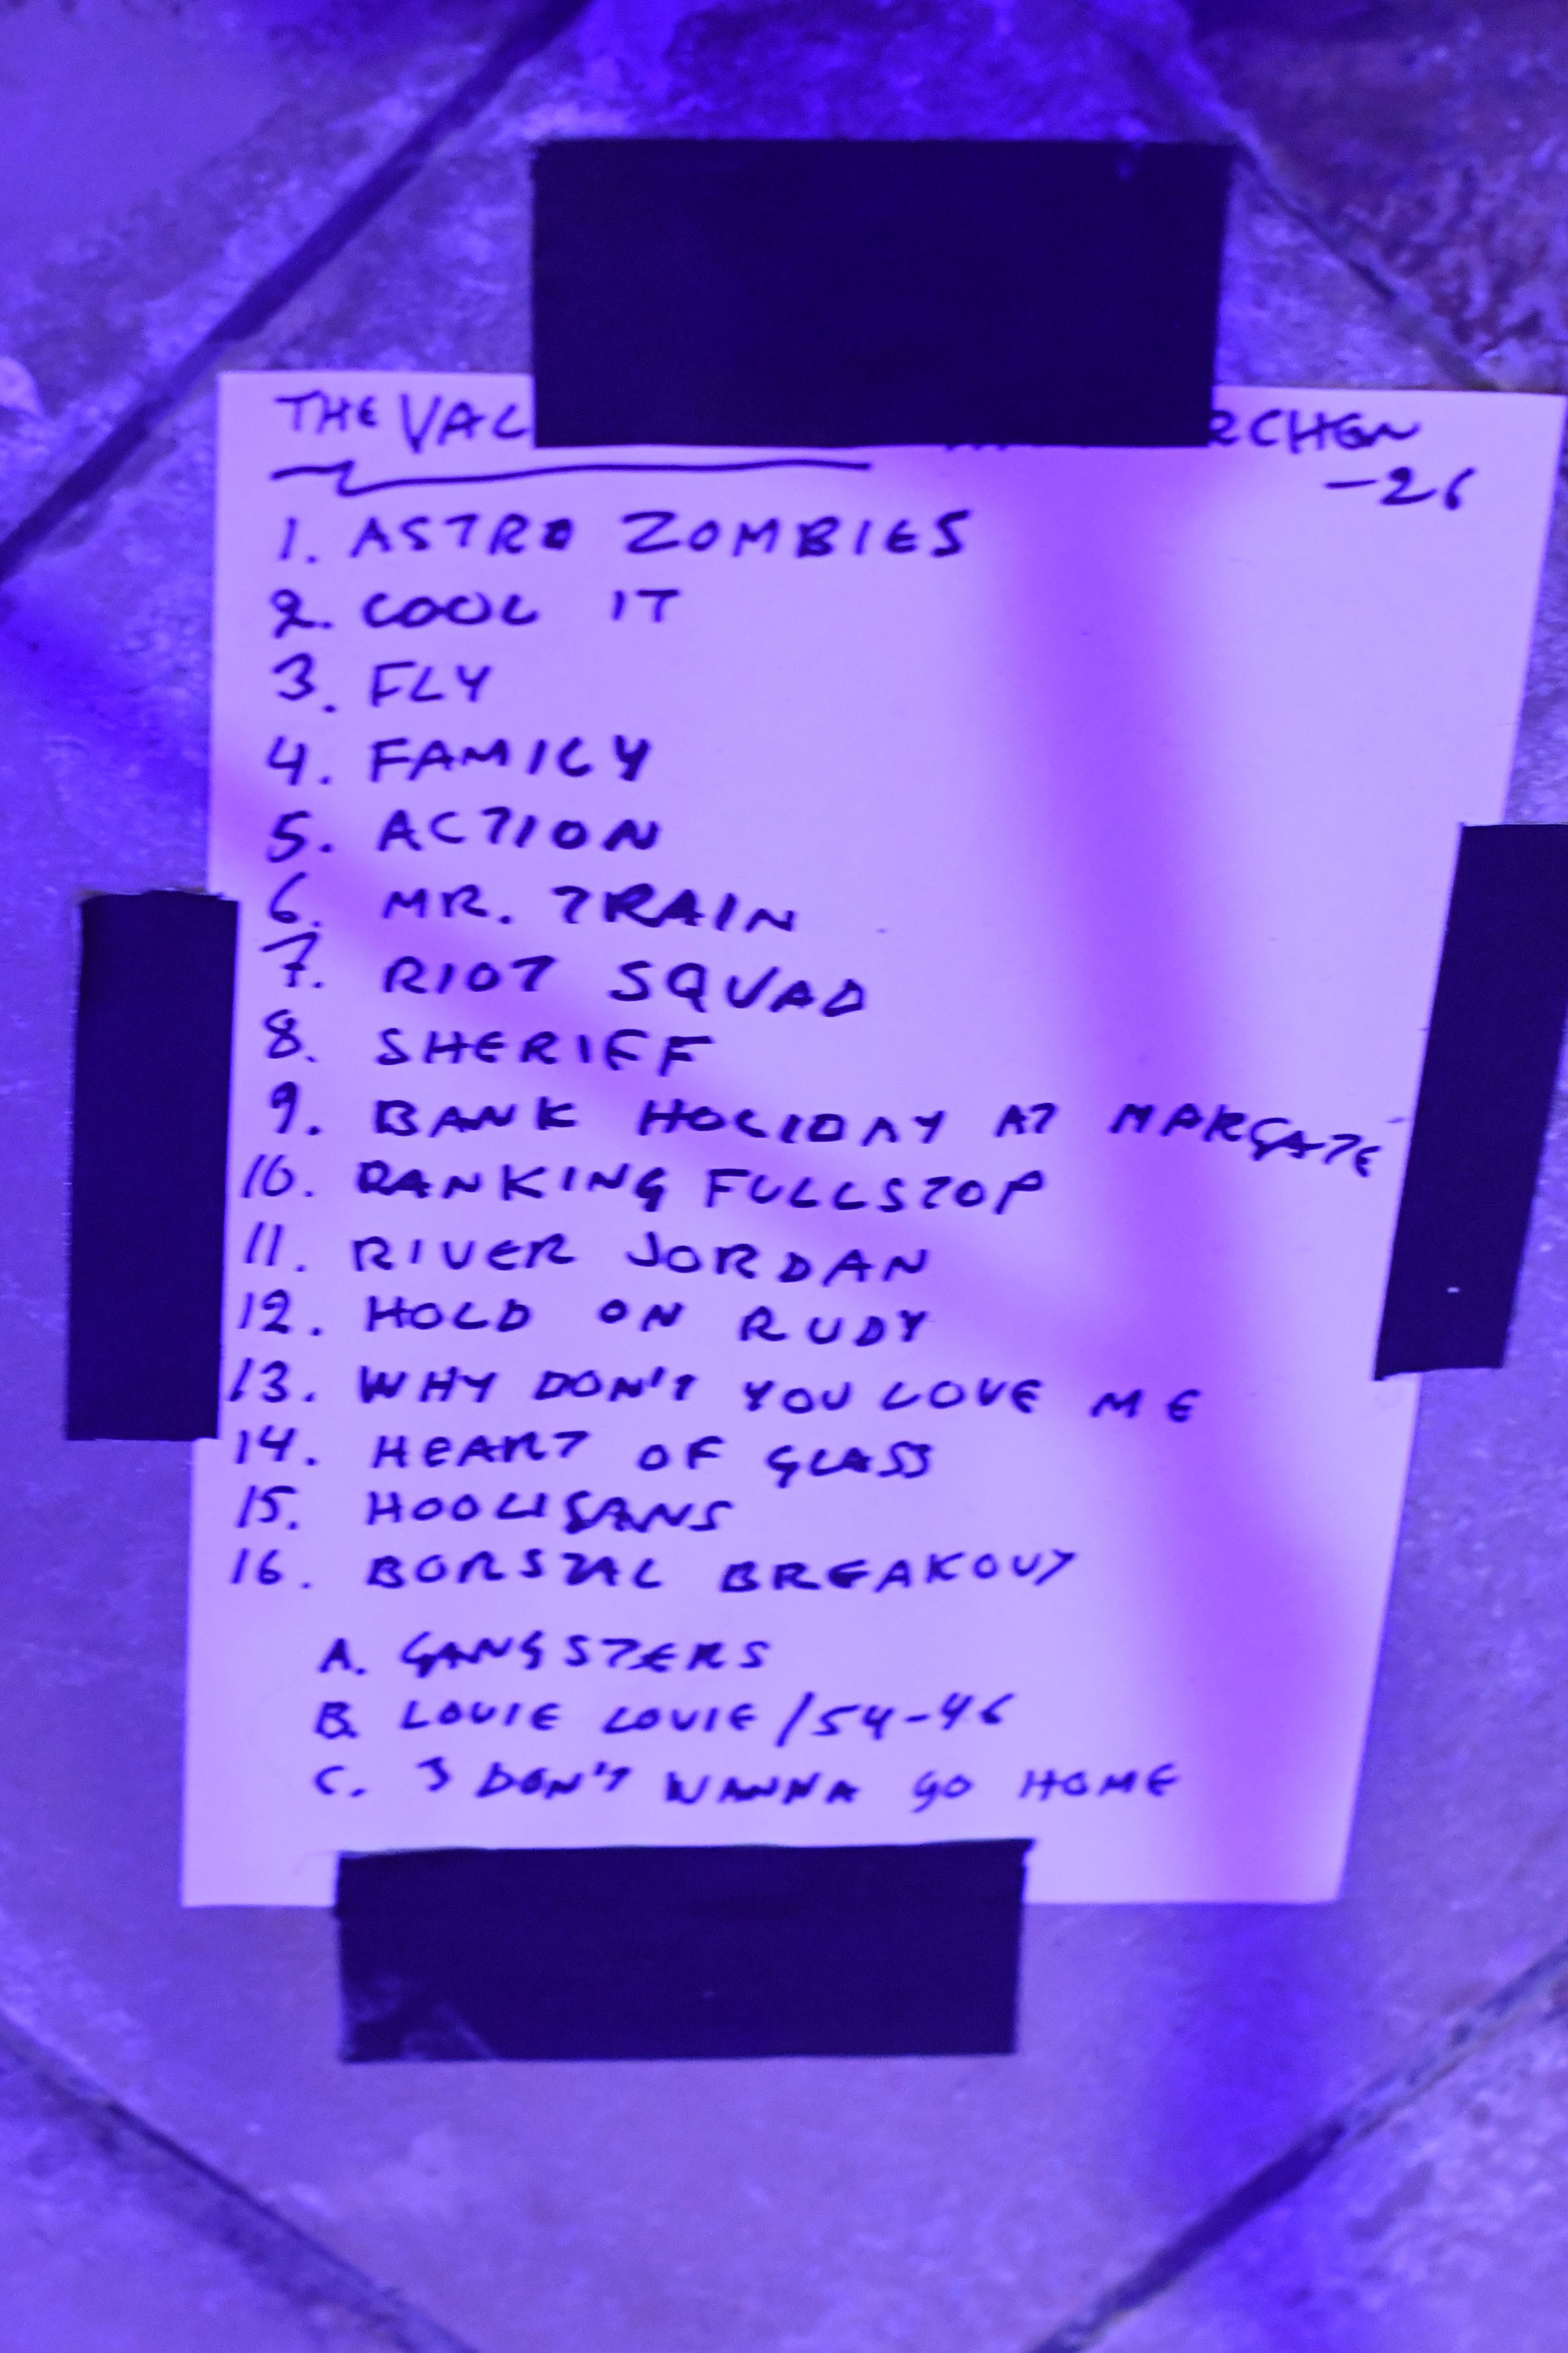 THE VAL RCHEN
-26
1. ASTRO ZOMBIES
2. COOL IT
3. FLY
4. FAMILY
5. ACTION
6. MR. TRAIN
7. RIOT SQUAD
8. SHERIFF
9. BANK HOLIDAY AT MARGATE
10. RANKING FULLSTOP
11. RIVER JORDAN
12. HOLD ON RUDY
13. WHY DON'T YOU LOVE ME
14. HEART OF GLASS
15. HOOLIGANS
16. BORSTAL BREAKOUT
A. GANGSTERS
B. LOUIE LOUIE / 54-46
C. I DON'T WANNA GO HOME